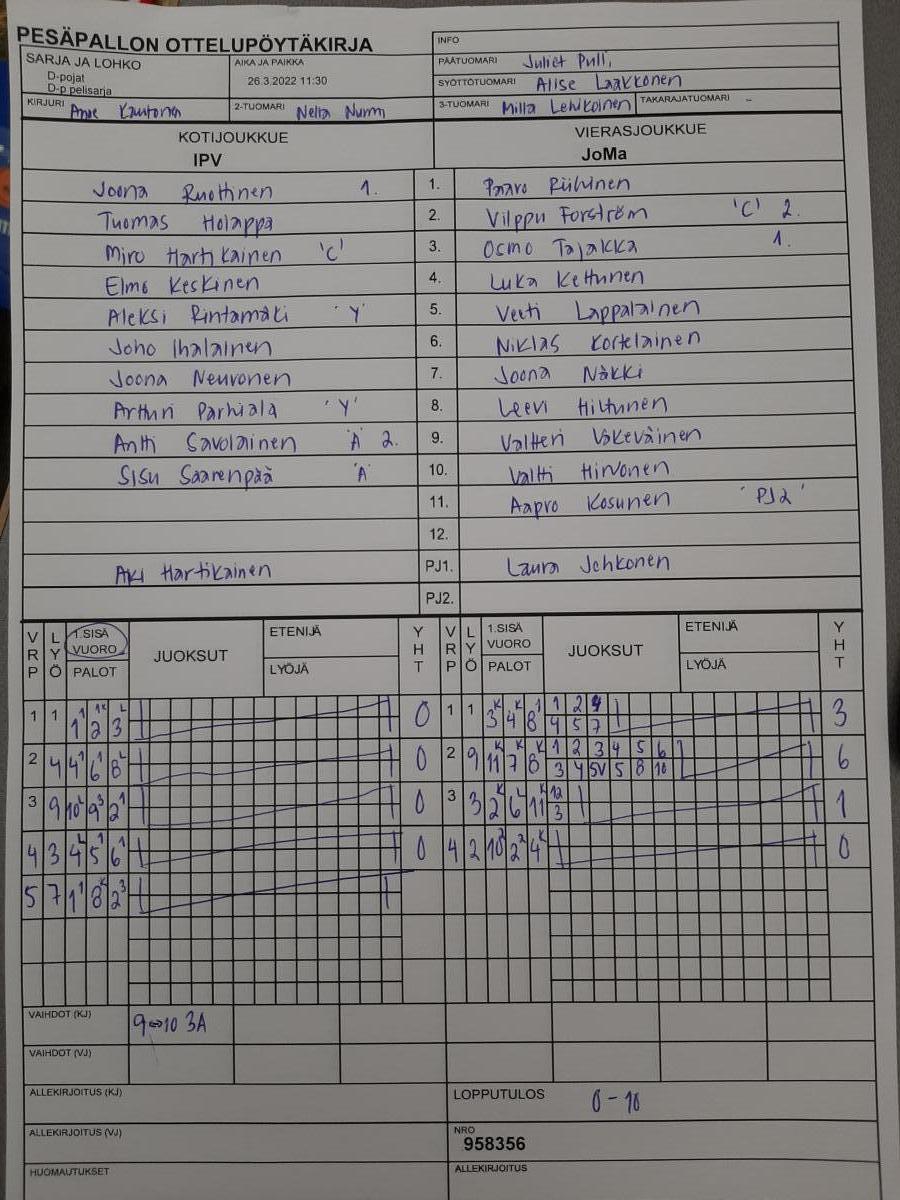 PESÄPALLON OTTELUPÖYTÄKIRJA
INFO
SARJA JA LOHKO
D-pojat
D-p pelisarja
AIKA JA PAIKKA
26.3.2022 11:30
PÄÄTUOMARI Juliet Pulli
SYÖTTÖTUOMARI Alise Laakkonen
KIRJURI Anne Kautonen
2-TUOMARI Nella Nurmi
3-TUOMARI Milla Levikoinen
TAKARAJATUOMARI -
KOTIJOUKKUE
IPV
VIERASJOUKKUE
JoMa
Joona Ruottinen 1. 1. Paavo Riihinen
Tuomas Holappa 2. Vilppu Forström 'C' 2.
Miro Hartikainen 'C' 3. Osmo Tajakka 1.
Elmo Keskinen 4. Luka Kettunen
Aleksi Rintamäki 'Y' 5. Veeti Lappalainen
Joho Ihalainen 6. Niklas Kortelainen
Joona Neuvonen 7. Joona Näkki
Artturi Parhiala 'Y' 8. Leevi Hiltunen
Antti Savolainen 'A' 2. 9. Valtteri Väkeväinen
Sisu Saarenpää 'A' 10. Valtti Hirvonen
11. Aapro Kosunen 'PJ2'
12.
Aki Hartikainen PJ1. Laura Johkonen
PJ2.
VRP LYÖ 1.SISÄ VUORO PALOT JUOKSUT ETENIJÄ LYÖJÄ YHT VRP LYÖ 1.SISÄ VUORO PALOT JUOKSUT ETENIJÄ LYÖJÄ YHT
1 1 1¹ 2 3 0 1 1 3ᴷ 4ᴷ 8¹ 1 2 4 3
4 5 7
2 4 4¹ 6¹ 8ᴸ 0 2 9 11ᴷ 7ᴷ 8ᴷ 1 2 3 4 5 6 6
3 4 5V 5 8 10
3 9 10² 9³ 2¹ 0 3 3 2ᴷ 6ᴸ 11ᴷ 12 1
3
4 3 4² 5¹ 6¹ 0 4 2 10² 2² 4ᴷ 0
5 7 1¹ 8ᴷ 2³
VAIHDOT (KJ) 9⇔10 3A
VAIHDOT (VJ)
ALLEKIRJOITUS (KJ)
LOPPUTULOS 0-10
ALLEKIRJOITUS (VJ)
NRO
958356
HUOMAUTUKSET
ALLEKIRJOITUS